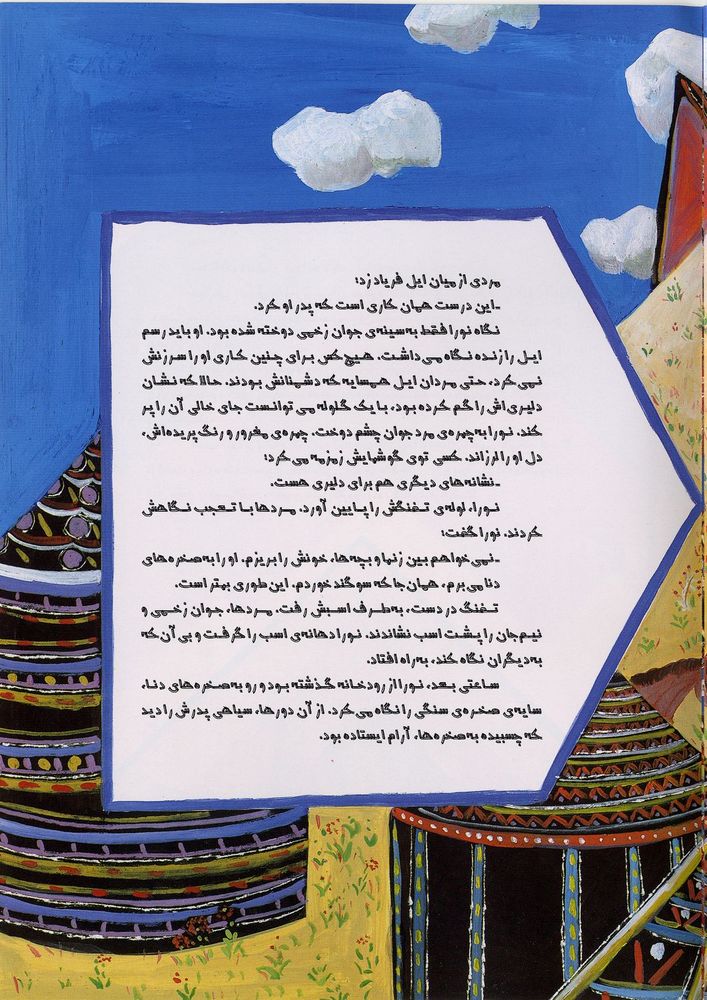 مردی از میان ایل فریاد زد:
ـ این درست همان کاری است که پدر او کرد.
نگاه نورا فقط به سینه‌ی جوان زخمی دوخته شده بود. او باید رسم
ایـل را زنده نگـاه می‌داشت. هیچ‌کس برای چنین کاری او را سرزنش
نمی‌کرد، حتی مردان ایل همسایه که دشمنانش بودند. حالا که نشان
دلیری‌اش را گم کرده بود، با یک گلوله می‌توانست جای خالی آن را پر
کند. نورا به چهره‌ی مرد جوان چشم دوخت. چهره‌ی مغرور و رنگ پریده‌اش،
دل او را لرزاند. کسی توی گوشهایش زمزمه می‌کرد:
ـ نشانه‌های دیگری هم برای دلیری هست.
نـورا، لوله‌ی تـفنگش را پـایین آورد. مـردها بـا تـعجب نگـاهش
کردند. نورا گفت:
ـ نمی‌خواهم بین زنها و بچه‌ها، خونش را بریزم. او را به صخره‌های
دنا می‌برم، همان جا که سوگند خوردم. این طوری بهتر است.
تـفنگ در دست، به‌طـرف اسبـش رفت. مـردها، جوان زخـمی و
نیم‌جان را پـشت اسب نشاندند. نورا دهانه‌ی اسب را گرفت و بی آن که
به دیگران نگاه کند، به‌راه افتاد.
سـاعتی بعد، نورا از رودخانه گذشته بود و رو به صخره‌های دنـا،
سایه‌ی صخره‌ی سنگی را نگاه می‌کرد. از آن دورها، سیاهی پدرش را دید
که چسبیده به صخره‌ها، آرام ایستاده بود.